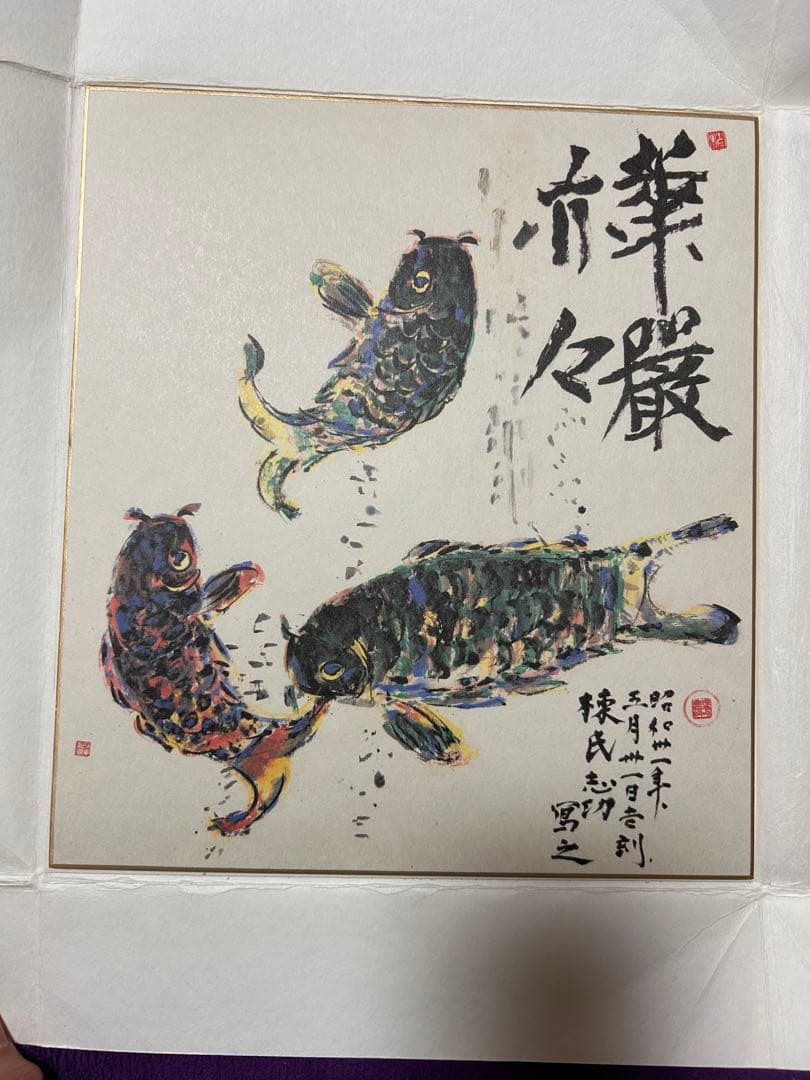 華嚴
有々
昭和卅一年、
五月卅一日吉刻、
棟方志功
寫之